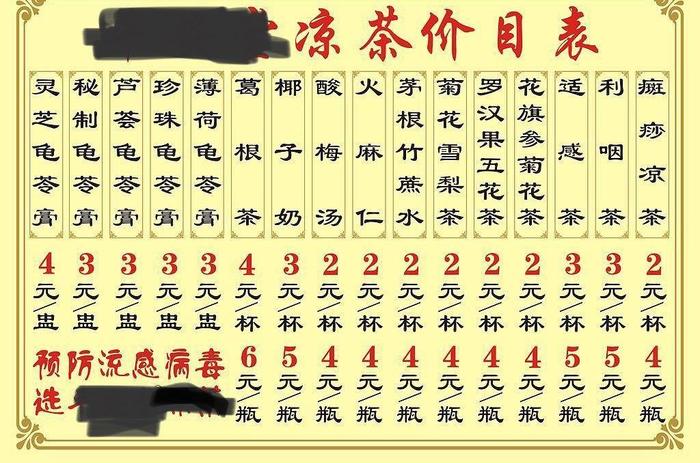 凉茶价目表
灵芝龟苓膏
秘制龟苓膏
芦荟龟苓膏
珍珠龟苓膏
薄荷龟苓膏
葛根茶
椰子奶
酸梅汤
火麻仁
茅根竹蔗水
菊花雪梨茶
罗汉果五花茶
花旗参菊花茶
适感茶
利咽茶
癍痧凉茶
4元/盅
3元/盅
3元/盅
3元/盅
3元/盅
4元/杯
3元/杯
2元/杯
2元/杯
2元/杯
2元/杯
2元/杯
2元/杯
3元/杯
3元/杯
2元/杯
预防流感病毒
选
6元/瓶
5元/瓶
4元/瓶
4元/瓶
4元/瓶
4元/瓶
4元/瓶
4元/瓶
5元/瓶
5元/瓶
4元/瓶